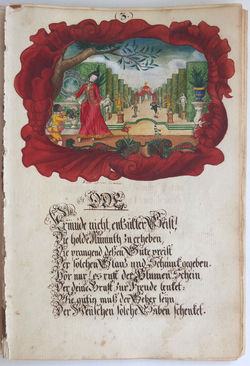 3.
ODE
Ermüde nicht entzükter Geist!
Die holde Anmuth zu erheben,
Die prangend dessen Güte preist
Der solchen Glanz und Schmuck gegeben.
Hör nur es ruft der Blumen Schein
Der deine Brust zur Freude lenket:
Wie gütig muß der Geber seyn
Der Menschen solche Gaben schenket.